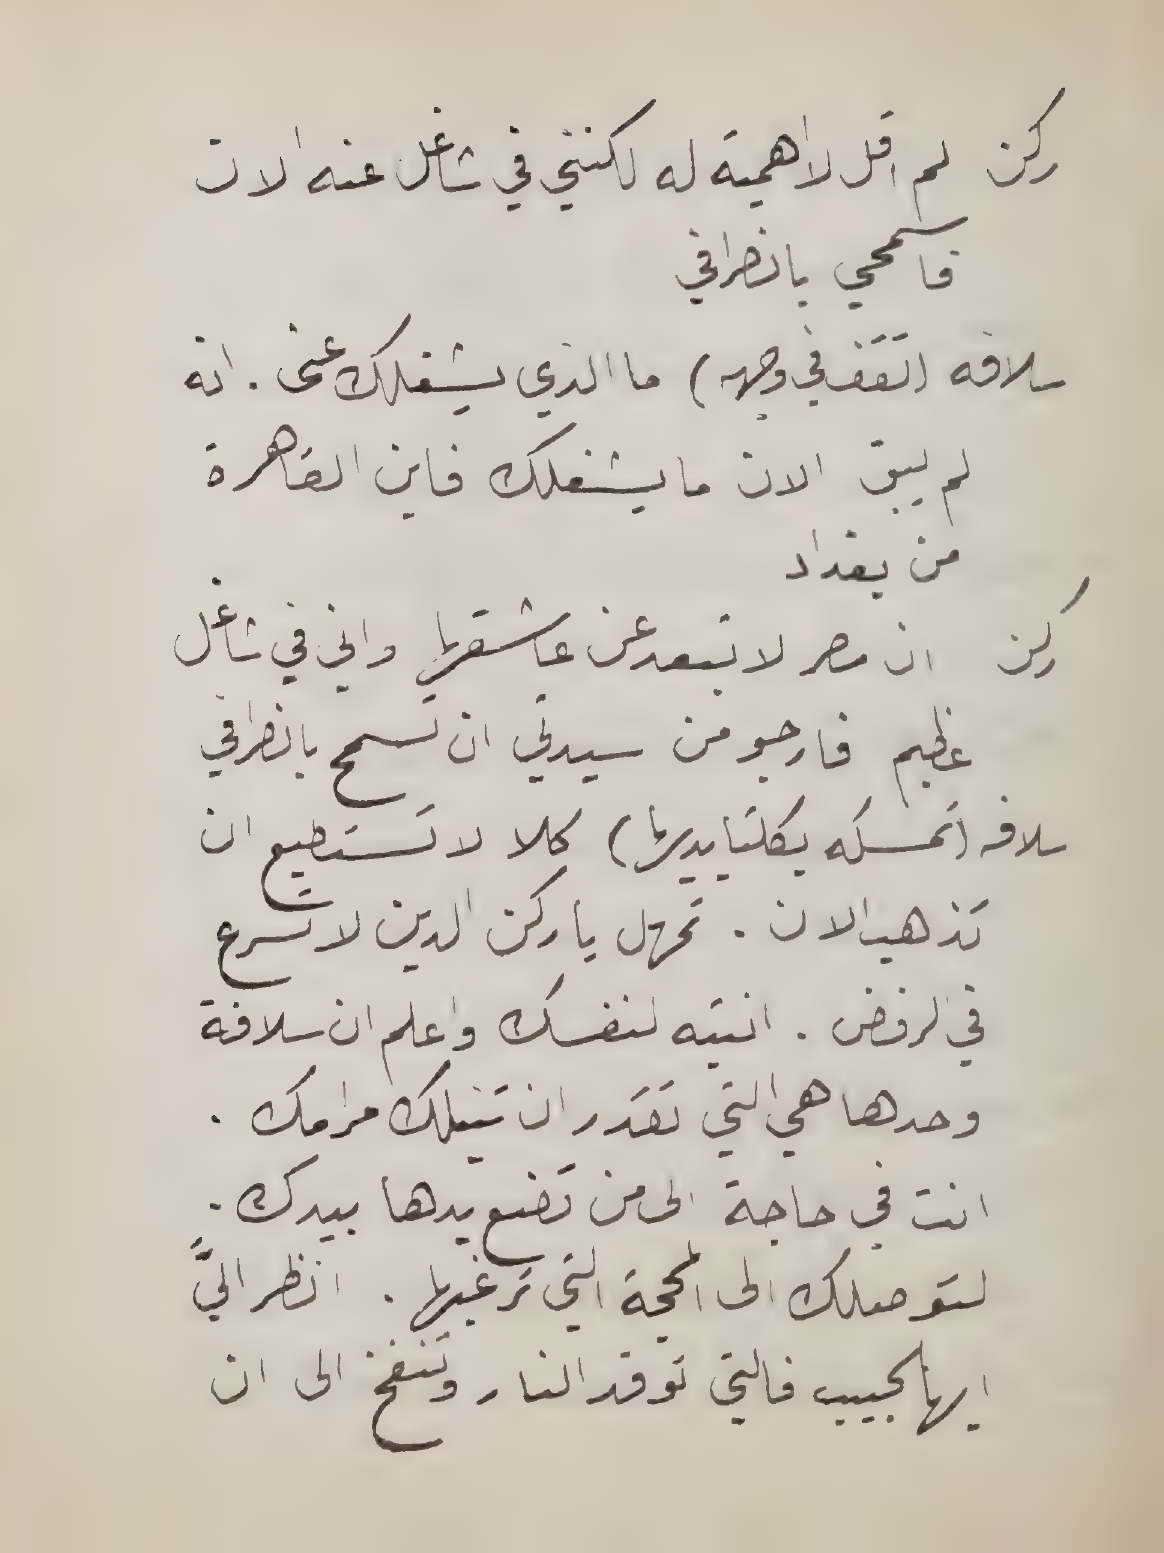 ركن لم اقل لا اهمية له لكنني في شاغل عنه الان
فاسمحي بانصرافي
سلافه (تقف في وجهه) ما الذي يشغلك عني . انه
لم يبق الان ما يشغلك فاين القاهرة
من بغداد
ركن ان مصر لا تبعد عن عاشقيها واني في شاغل
عظيم فارجو من سيدتي ان تسمح بانصرافي
سلافه (تمسكه بكلتا يديها) كلا لا تستطيع ان
تذهب الان . تمهل يا ركن الدين لا تسرع
في الرفض . انتبه لنفسك واعلم ان سلافة
وحدها هي التي تقدر ان تنيلك مرامك .
انت في حاجة الى من تضع يدها بيدك .
لتوصلك الى المحجة التي ترغبها . انظر اليَّ
ايها الحبيب فالتي توقد النار وتنفخ الى ان